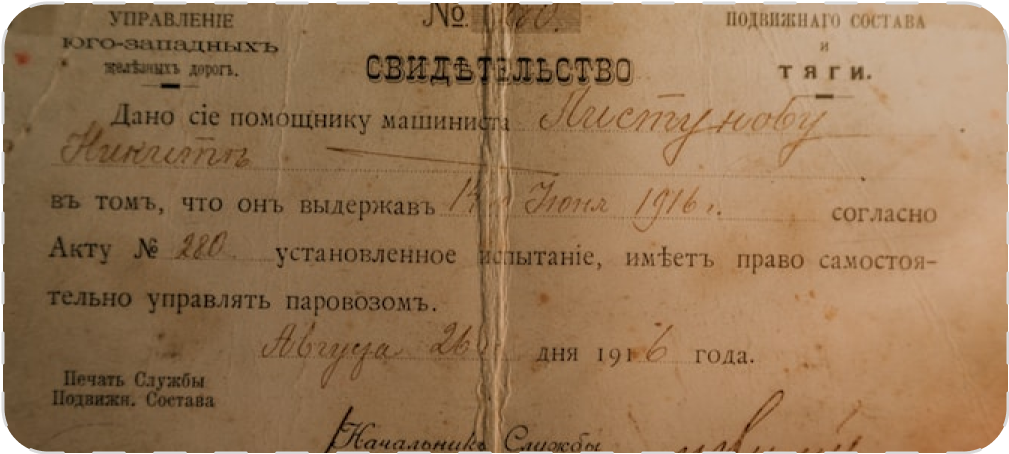 УПРАВЛЕНІЕ
ЮГО-ЗАПАДНЫХЪ
желѣзныхъ дорогъ.
№ 280.
ПОДВИЖНАГО СОСТАВА
и
ТЯГИ.
СВИДѢТЕЛЬСТВО
Дано сіе помощнику машиниста Пистунову
Никитѣ
въ томъ, что онъ выдержавъ 14 Іюня 1916 г. согласно
Акту № 280 установленное испытаніе, имѣетъ право самостоя-
тельно управлять паровозомъ.
Августа 26 дня 1916 года.
Печать Службы
Подвижн. Состава
Начальникъ Службы